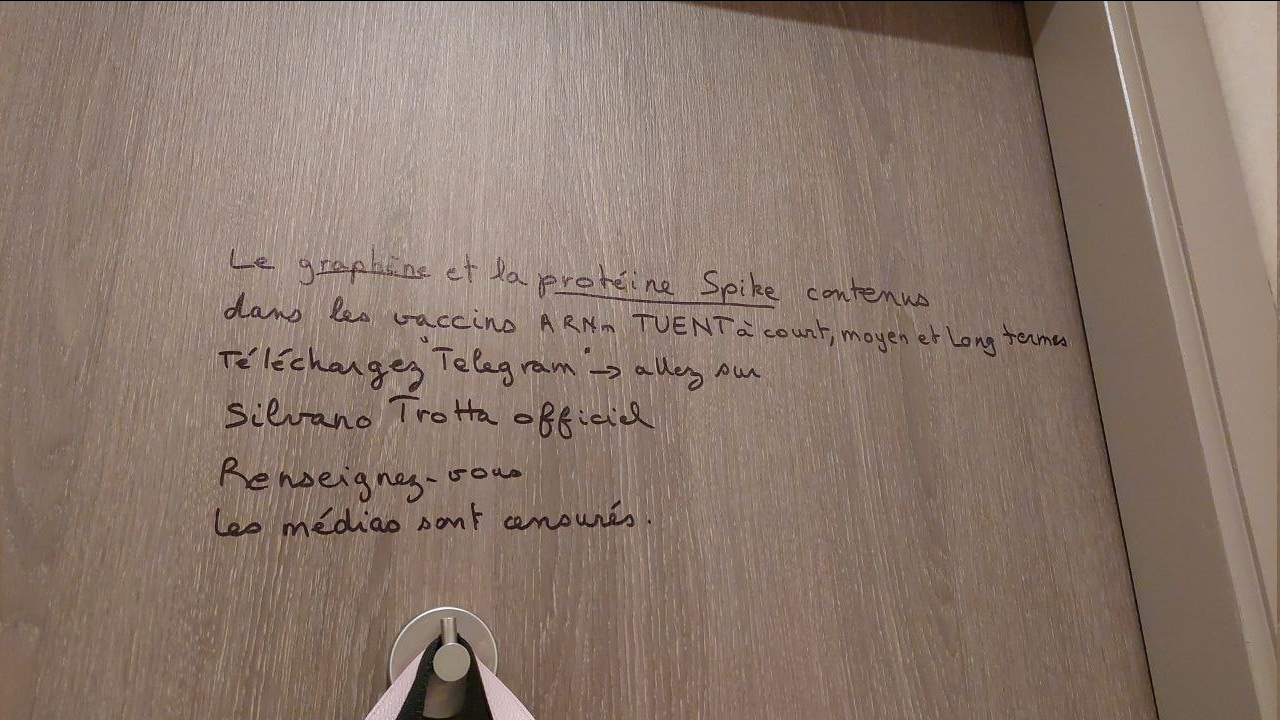 Le graphène et la protéine Spike contenus
dans les vaccins ARNm TUENT à court, moyen et Long termes
Téléchargez "Telegram" → allez sur
Silvano Trotta officiel
Renseignez-vous
Les médias sont censurés.